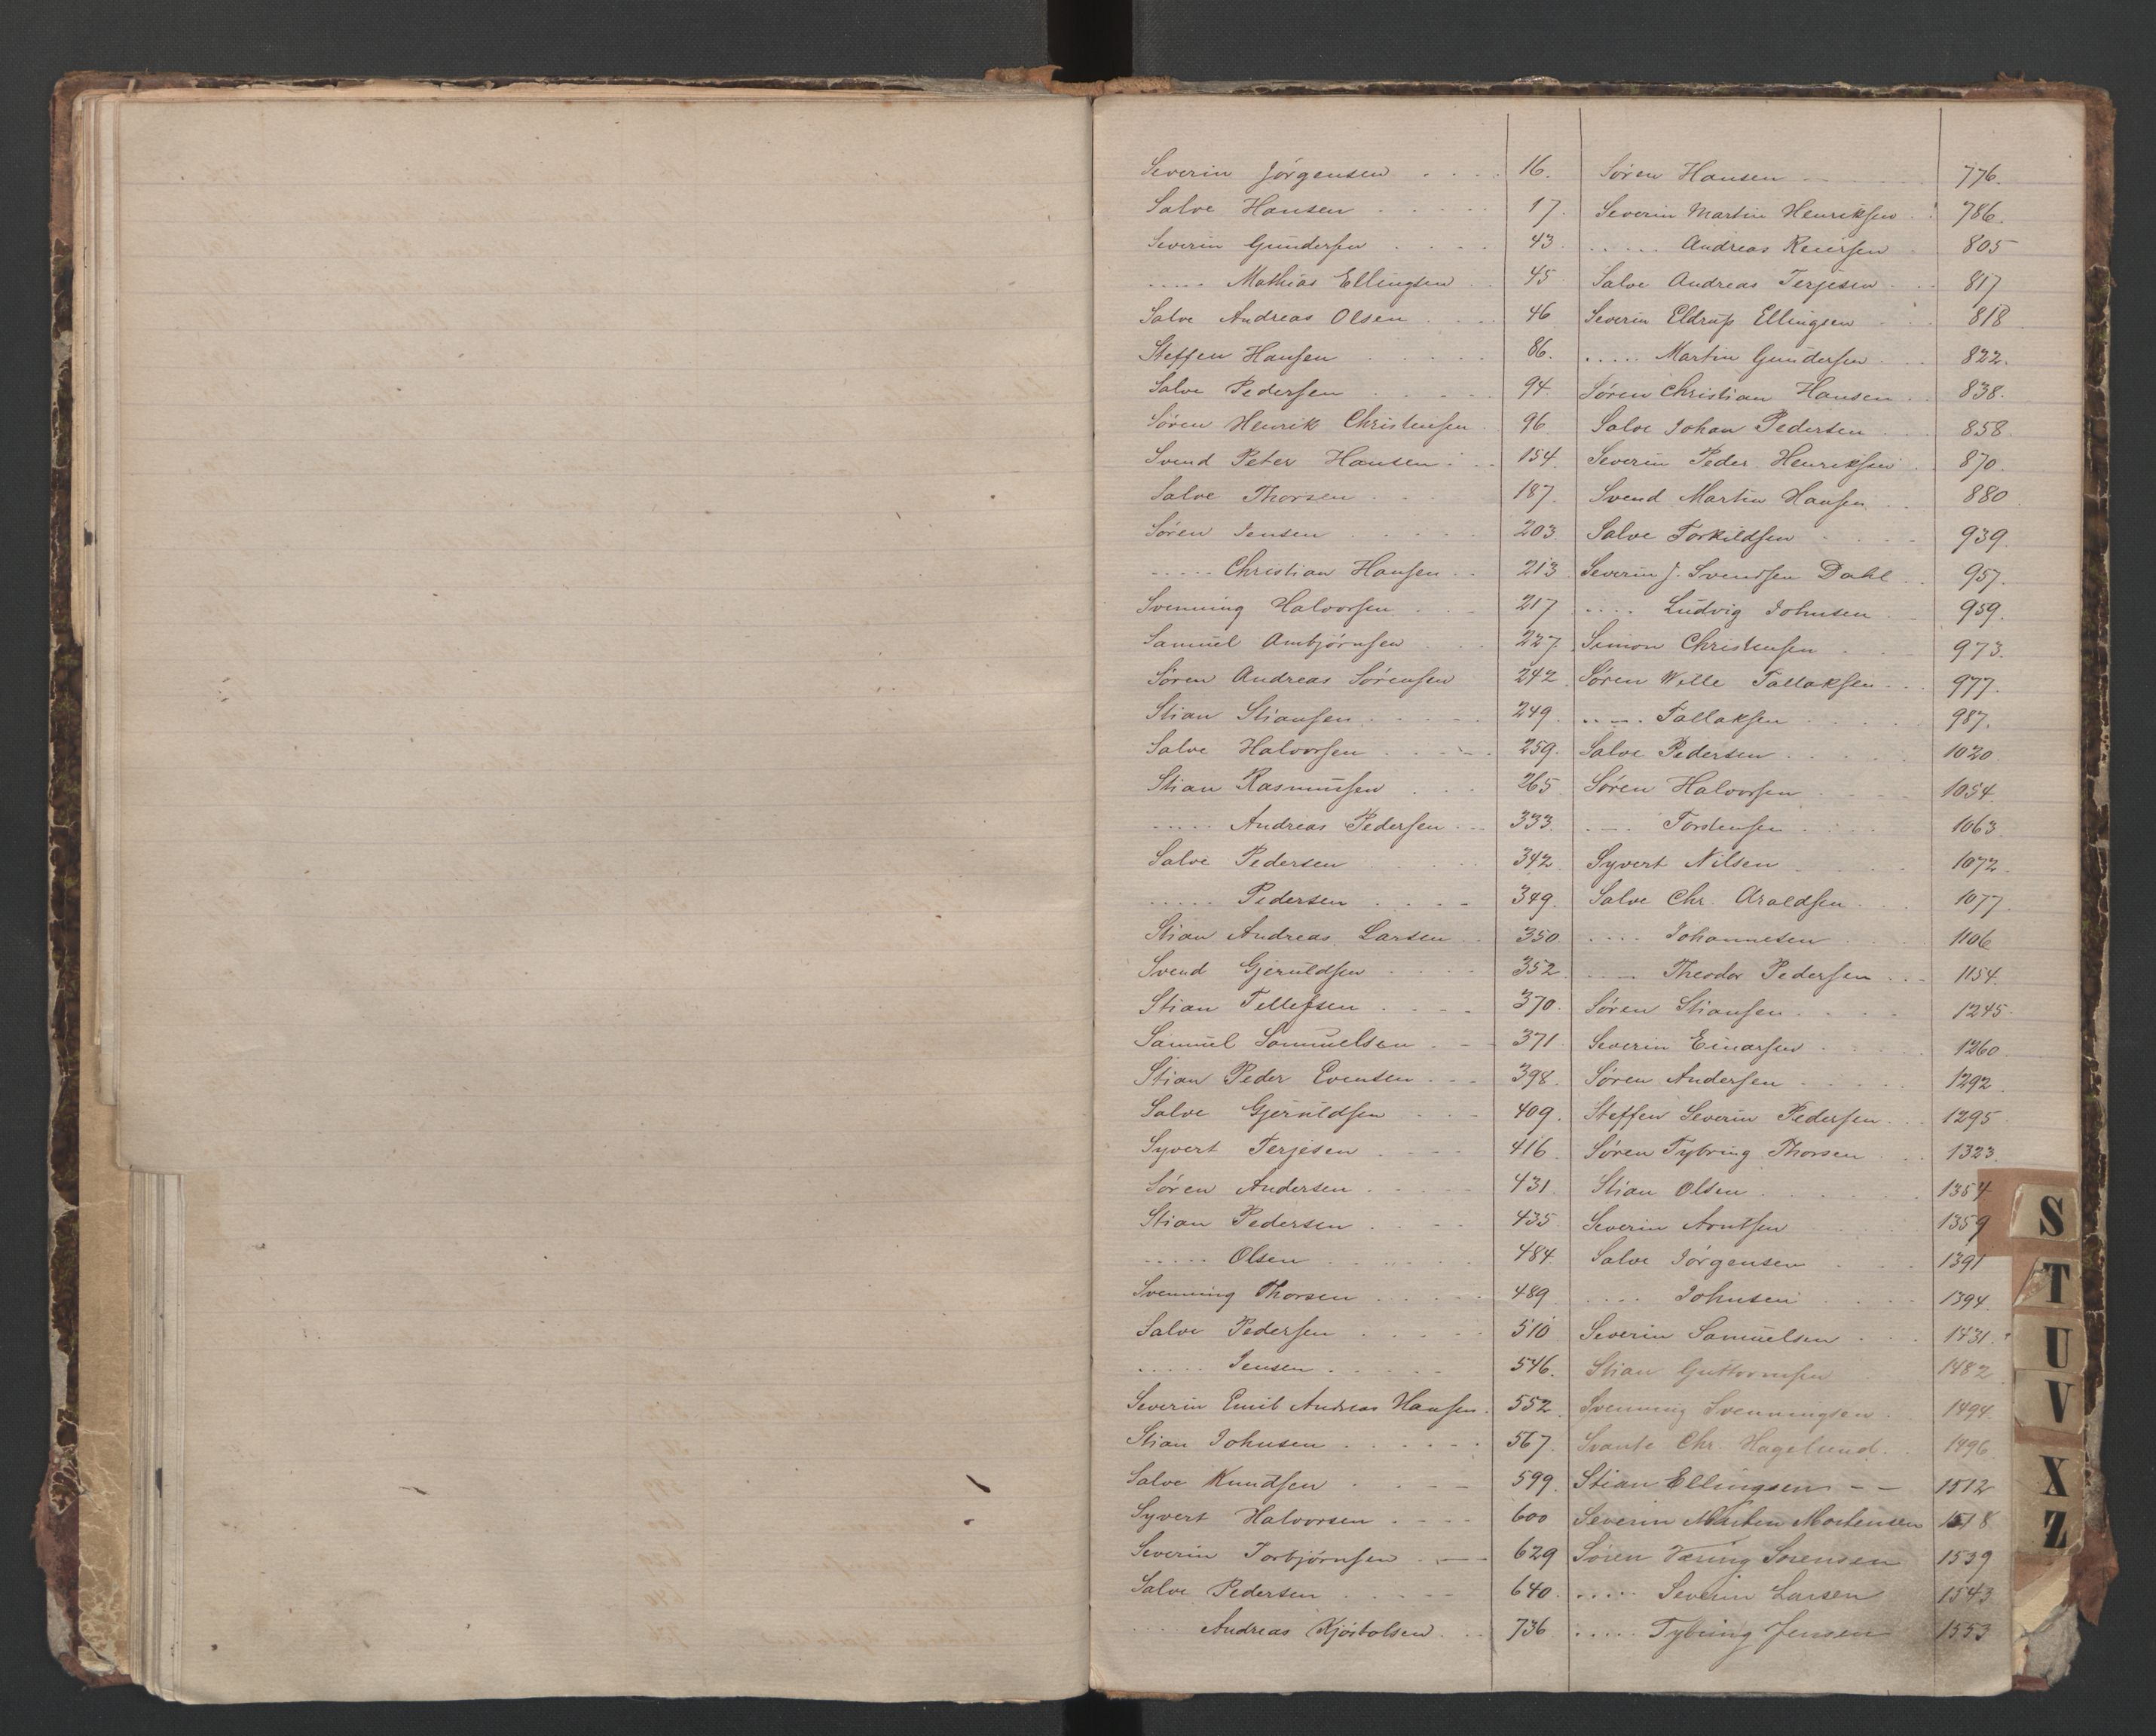 Severin Jörgensen . . . . 16.
Salve Hansen . . . . . 17.
Severin Gundersen . . . . 43
..... Mathias Ellingsen . . 45
Salve Andreas Olsen . . . 46
Steffen Hansen . . . . . 86.
Salve Pedersen . . . . . 94.
Sören Henrik Christensen . 96
Svend Peter Hansen . . . 154.
Salve Thorsen . . . . 187.
Sören Jensen . . . . . 203.
..... Christian Hansen . . 213
Svenning Halvorsen . . . 217
Samuel Ambjörnsen . . . 227.
Sören Andreas Sörensen 242.
Stian Stiansen . . . . . 249.
Salve Halvorsen . . . . 259.
Stian Rasmussen . . . 265
..... Andreas Pedersen . . 333.
Salve Pedersen . . . . 342
..... Pedersen . . . . 349.
Stian Andreas Larsen . . 350
Svend Gjeruldsen . . . . 352
Stian Tellefsen . . . . 370.
Samuel Samuelsen . . . 371
Stian Peder Evensen . . . 398.
Salve Gjeruldsen . . . 409.
Syvert Terjesen . . . . 416.
Sören Andersen . . . . 431.
Stian Pedersen . . . . 435
..... Olsen . . . . . . 484.
Svenning Thorsen . . . . 489
Salve Pedersen . . . . . 510
..... Jensen . . . . . 546.
Severin Emil Andreas Hansen . 552.
Stian Johnsen . . . . . . 567.
Salve Knudsen . . . . 599.
Syvert Halvorsen . . . . 600
Severin Torbjörnsen . . . 629
Salve Pedersen . . . . . 640.
..... Andreas Kjöstolsen . . 736
Sören Hansen . . . 776.
Severin Martin Henriksen . 786.
..... Andreas Reiersen 805
Salve Andreas Terjesen . . 817
Severin Eldrup Ellingsen . . 818
..... Martin Gundersen . . 822.
Sören Christian Hansen . . 838.
Salve Johan Pedersen . . . 858.
Severin Peder Henriksen . 870.
Svend Martin Hansen . . 880
Salve Torkildsen . . . . 939.
Severin J. Svendsen Dahl . . 957.
.... Ludvig Johnsen . . 959.
Simon Christensen . . . 973.
Sören Wille Tallaksen . . . 977.
..... Tallaksen . . . . . 987.
Salve Pedersen . . . . . 1020
Sören Halvorsen . . . . 1054.
.... Torstensen . . . . 1063.
Syvert Nilsen . . . . . 1072.
Salve Chr. Araldsen . . . 1077.
.... Johannesen . . . 1106
.... Theodor Pedersen . . . 1154.
Sören Stiansen . . . . 1245.
Severin Einarsen . . . . 1260
Sören Andersen . . . . . 1292
Steffen Severin Pedersen . . . 1295
Sören Tybring Thorsen . . . 1323.
Stian Olsen . . . . . . 1354
Severin Arntsen . . . . 1359
Salve Jörgensen . . . . 1391
.... Johnsen . . . . 1394.
Severin Samuelsen . . . 1431.
Stian Guttormsen 1482
Svenning Svenningsen . . 1494.
Svante Chr. Hagelund . . 1496
Stian Ellingsen - - 1512
Severin Martin Mortensen 1518
Sören Væring Sorensen 1539
..... Severin Larsen 1543
..... Tybring Jensen 1553
S
T
U
V
X
Z